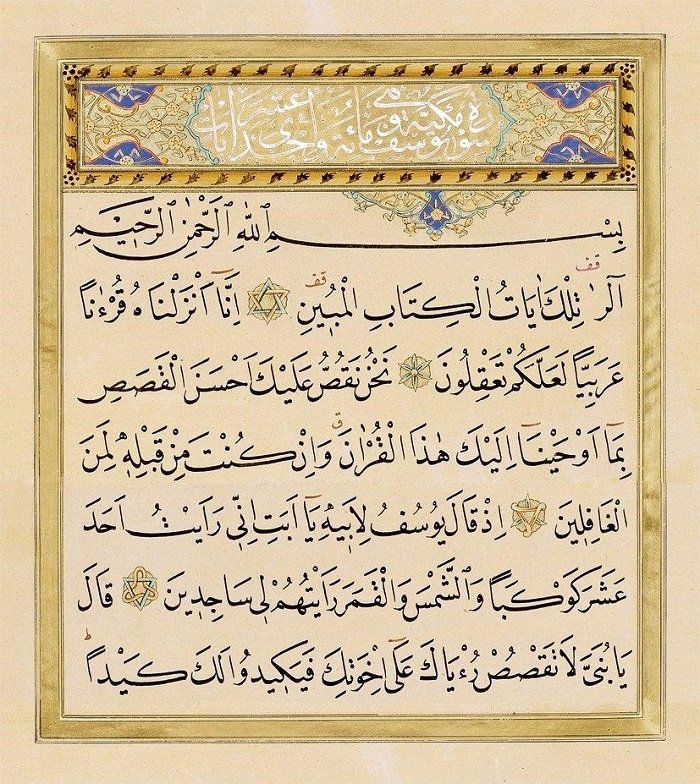 سورة يوسف مكية وهى مائة واحدى عشر ايات
بِسْمِ اللهِ الرَّحْمٰنِ الرَّحِيمِ
الٓرٰ قف تِلْكَ اٰيَاتُ الْكِتَابِ الْمُبِينِ قف اِنَّٓا اَنْزَلْنَاهُ قُرْءٰنًا
عَرَبِيًّا لَعَلَّكُمْ تَعْقِلُونَ نَحْنُ نَقُصُّ عَلَيْكَ اَحْسَنَ الْقَصَصِ
بِمَٓا اَوْحَيْنَٓا اِلَيْكَ هٰذَا الْقُرْاٰنَ ق وَاِنْ كُنْتَ مِنْ قَبْلِهٖ لَمِنَ
الْغَافِلِينَ اِذْ قَالَ يُوسُفُ لِاَبِيهِ يَٓا اَبَتِ اِنِّى رَاَيْتُ اَحَدَ
عَشَرَ كَوْكَبًا وَالشَّمْسَ وَالْقَمَرَ رَاَيْتُهُمْ لِى سَاجِدِينَ قَالَ
يَا بُنَىَّ لَا تَقْصُصْ رُءْيَاكَ عَلٰٓى اِخْوَتِكَ فَيَكِيدُوا لَكَ كَيْدًا ط